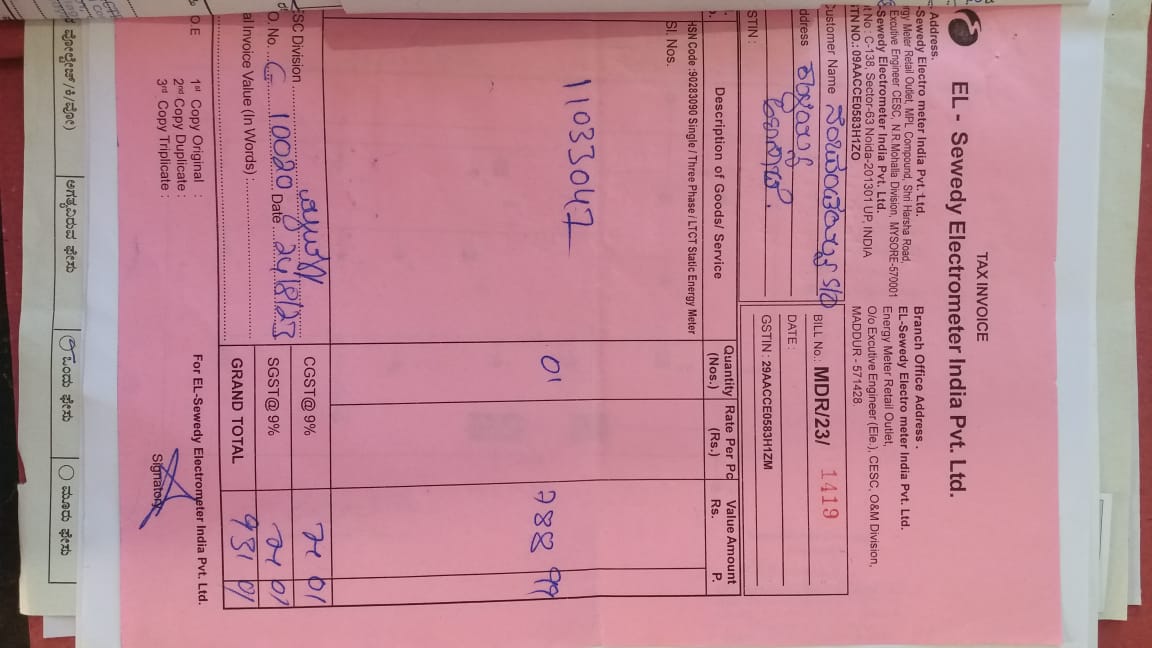 TAX INVOICE
EL - Sewedy Electrometer India Pvt. Ltd.
Address.
-Sewedy Electro meter India Pvt. Ltd.
rgy Meter Retail Outlet, MPL Compound, Shri Harsha Road,
Excutive Engineer CESC, N.R.Mohalla Division, MYSORE-570001
-Sewedy Electrometer India Pvt. Ltd.
t No : C-138, Sector-63 Noida-201301 UP, INDIA
TIN NO.: 09AACCE0583H1ZO
Branch Office Address .
EL-Sewedy Electro meter India Pvt. Ltd.
Energy Meter Retail Outlet,
O/o Excutive Engineer (Ele.), CESC, O&M Division,
MADDUR - 571428.
ustomer Name S/O
ddress
STIN :
BILL No.: MDR/23/ 1419
DATE :
GSTIN : 29AACCE0583H1ZM
Description of Goods/ Service
Quantity (Nos.)
Rate Per Pc (Rs.)
Value Amount
Rs. P.
HSN Code :90283090 Single / Three Phase / LTCT Static Energy Meter
Sl. Nos.
11033047 01 788 99
SC Division
O. No. 10020 Date 24/8/23
al Invoice Value (In Words) :
CGST@ 9% 71 01
SGST@ 9% 71 01
GRAND TOTAL 931 01
O.E
1st Copy Original :
2nd Copy Duplicate :
3rd Copy Triplicate :
For EL-Sewedy Electrometer India Pvt. Ltd.
Signatory
ಅಗತ್ಯವಿರುವ ಫೇಸು
ಒಂದು ಫೇಸು
ಮೂರು ಫೇಸು